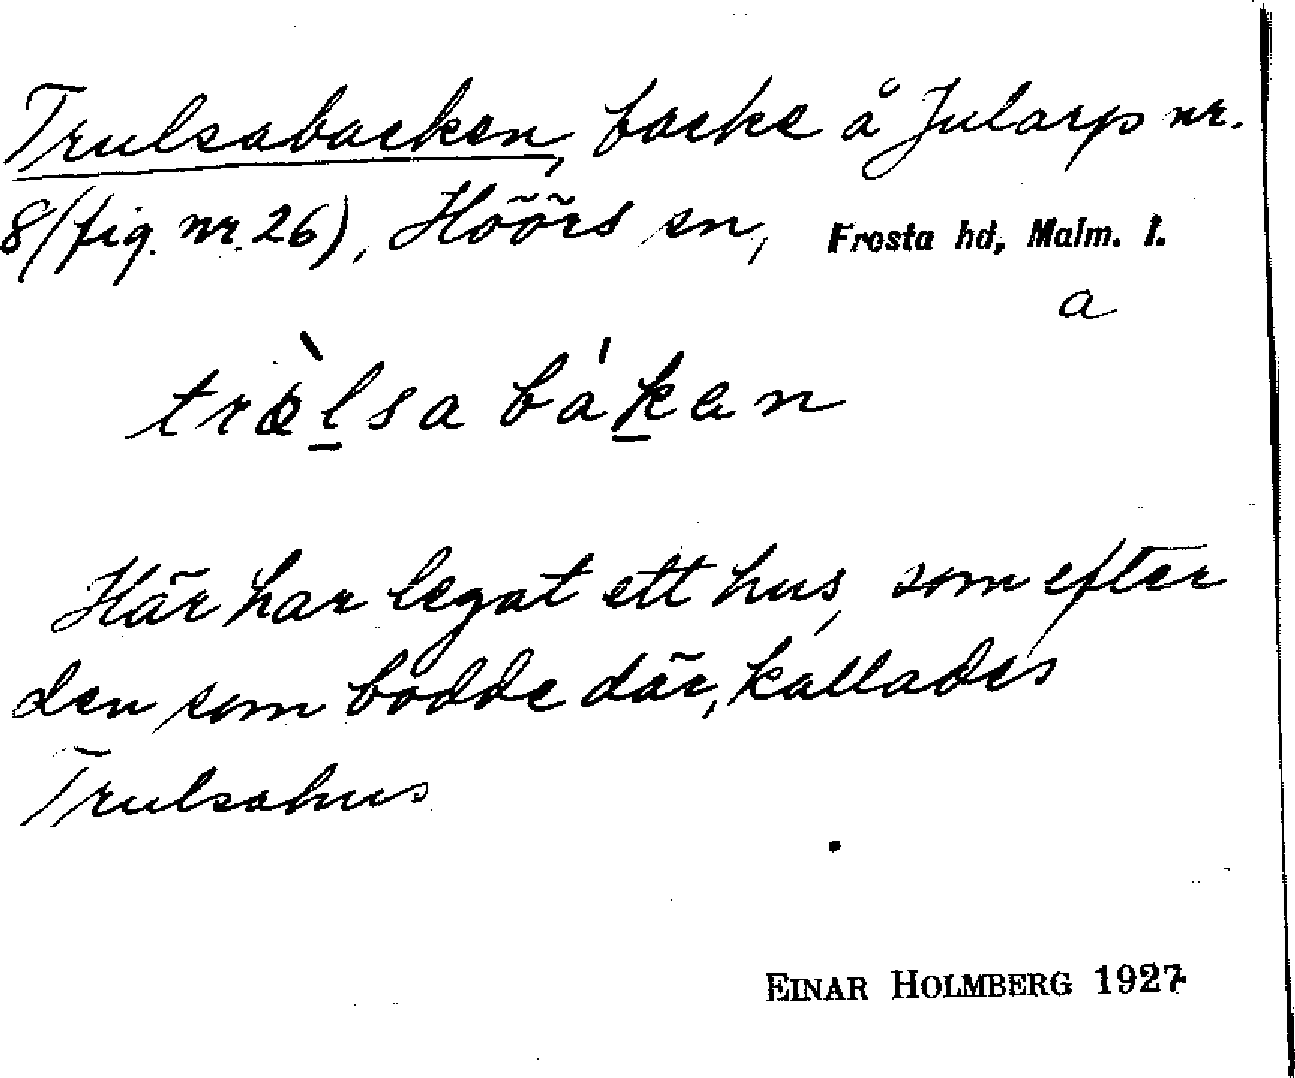 Trulsabacken, backe å Jularp nr.
8 (fig. nr. 26), Höörs sn, Frosta hd, Malm. l.
a
bákan
Här har legat ett hus, som efter
den som bodde där, kallades
Trulsahus
EINAR HOLMBERG 1927